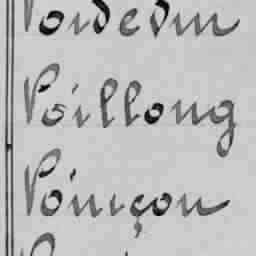 Poidevin
Poillong
Poinçon